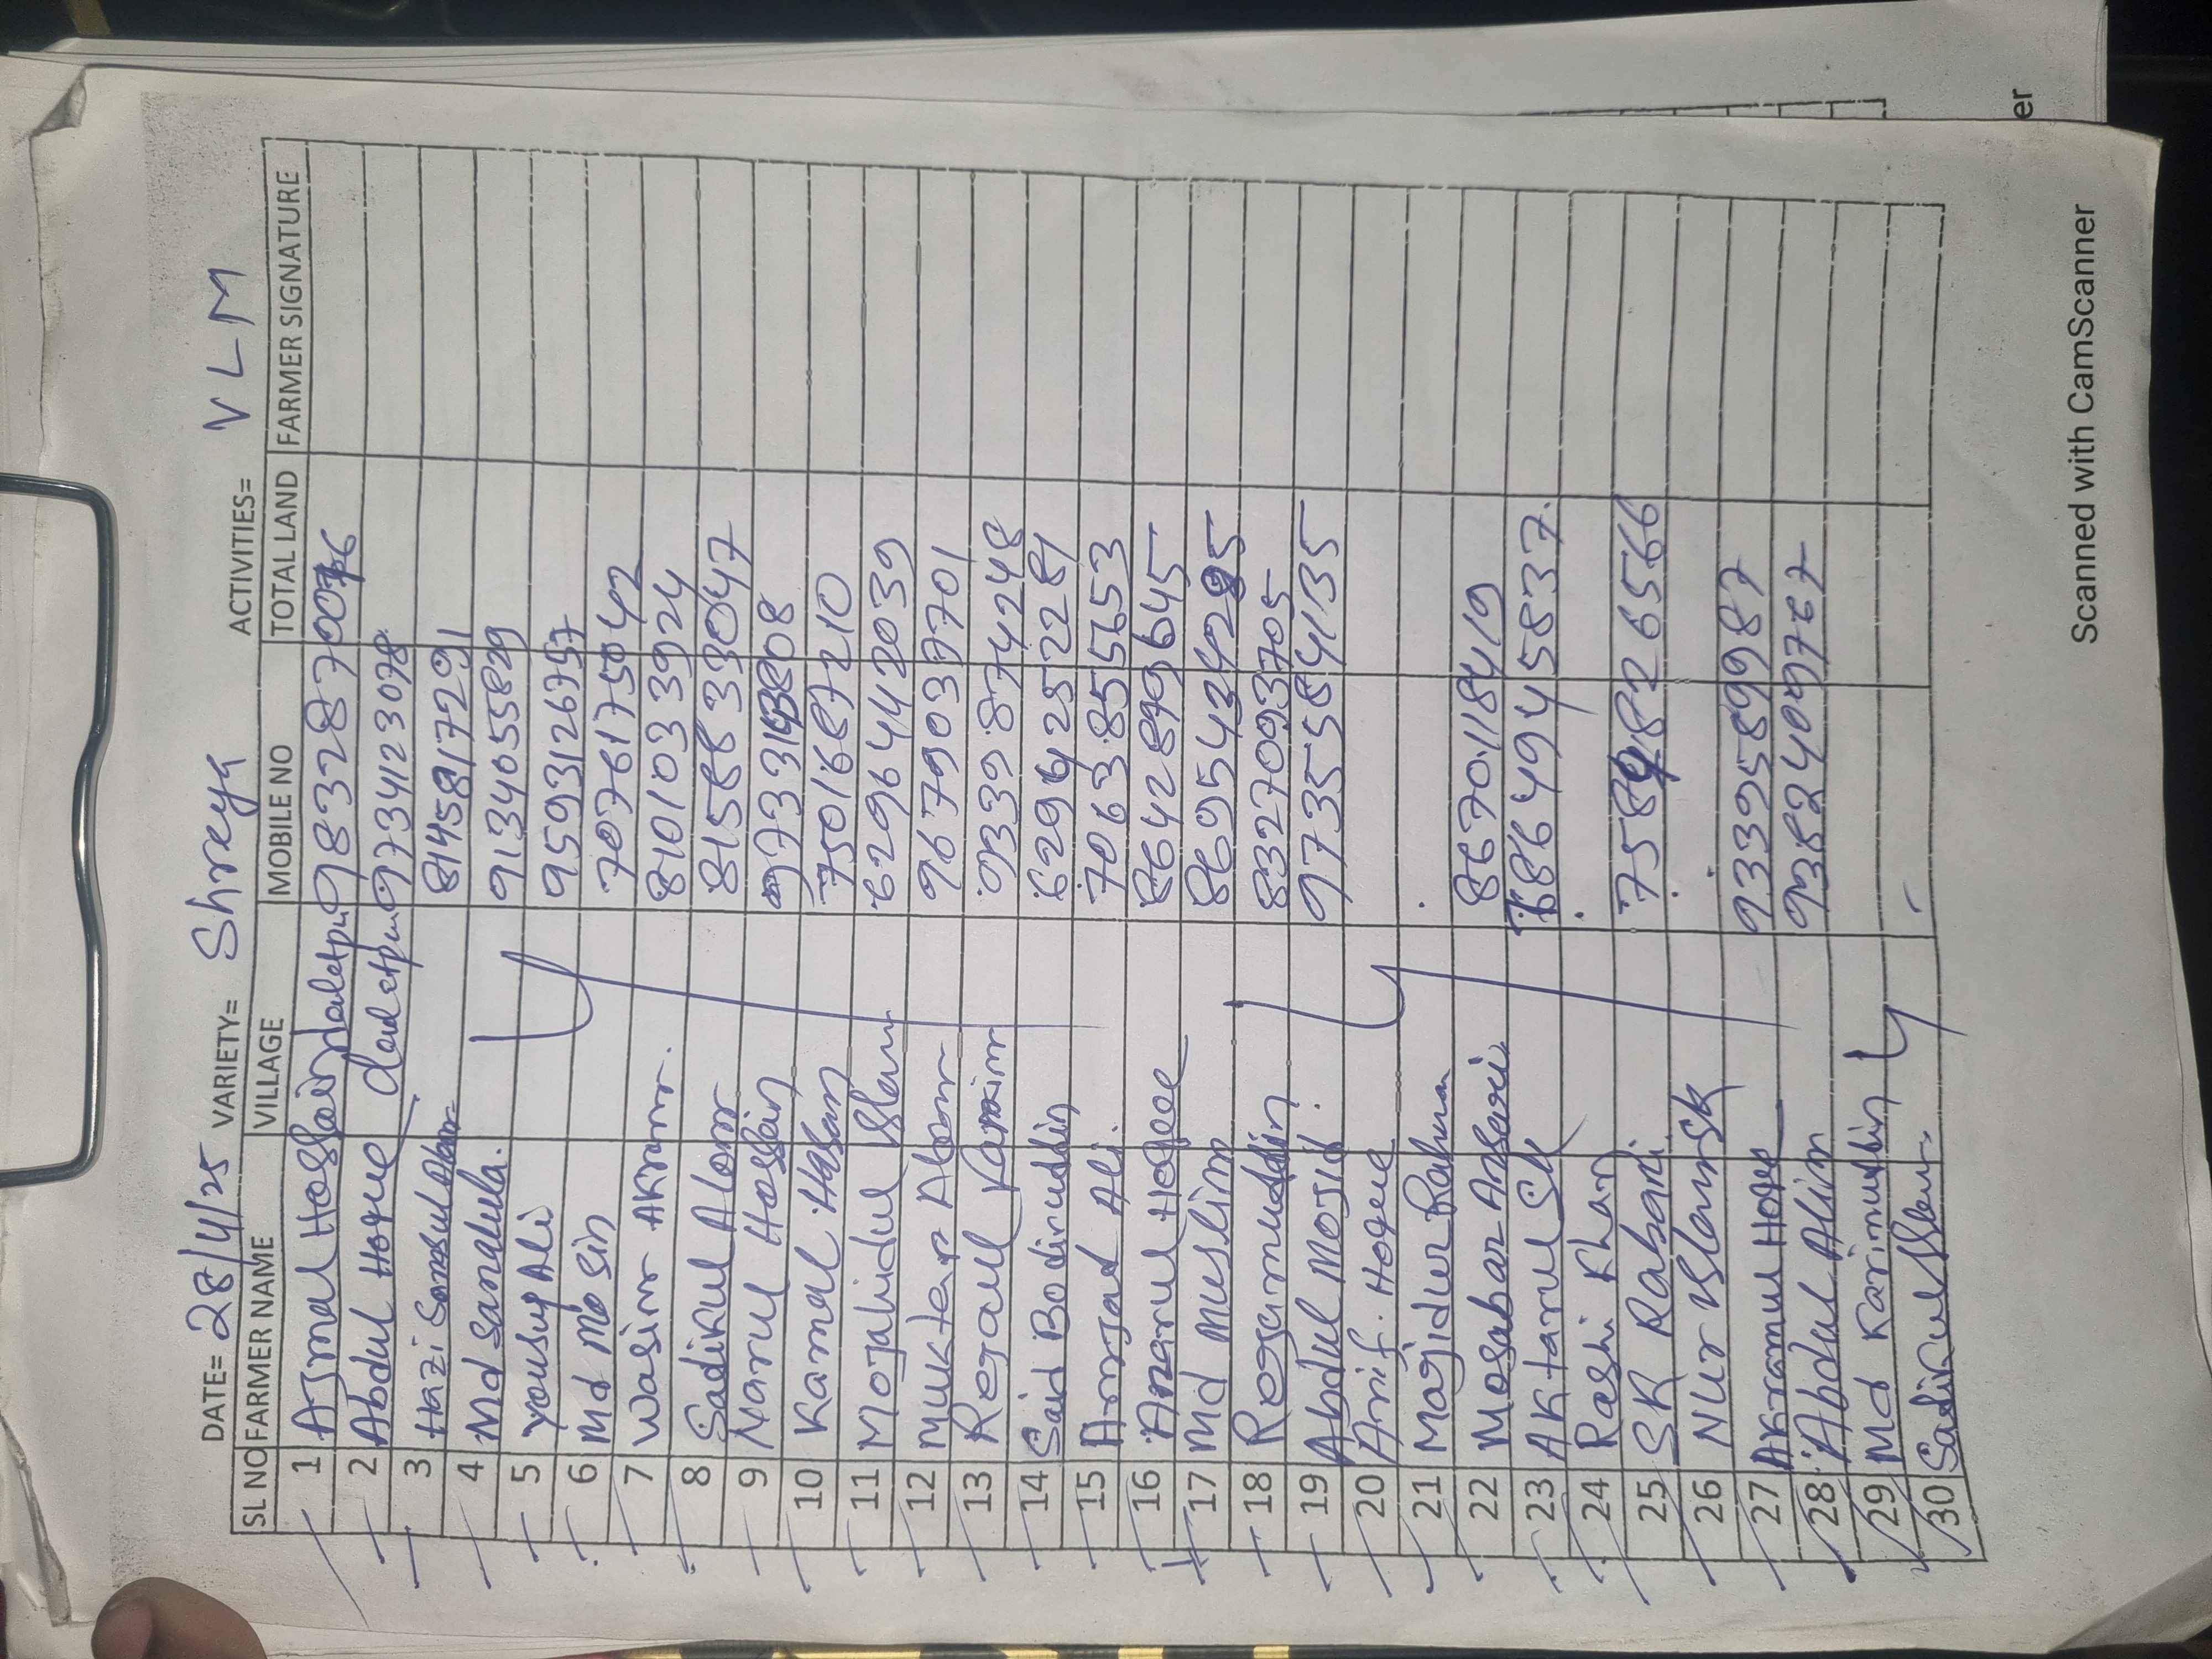 DATE= 28/4/25 VARIETY= Shreya ACTIVITIES= V L M
SL NO FARMER NAME VILLAGE MOBILE NO TOTAL LAND FARMER SIGNATURE
1 Ajmal Hossain 9832870076
2 Abdul Hoque 9734123078
3 Hazi Samsul Alam 8145817291
4 Md Sanaulla. 9134055829
5 Yousuf Ali 9593126757
6 Md Mosin 7076175042
7 Wasim Akram. 8101033924
8 Sadikul Alom 8158833047
9 Narul Hossain
10 Kamal Hasan 7501687210
11 Mojahidul Islam 6296442039
12 Muktar Alam 9679037701
13 Rejaul Karim 9339874248
14 Said Bodiruddin 6296252281
15 Amjad Ali. 7063855653
16 Anarul Hoque 8642899645
17 Md Muslim 8695434295
18 Rejamuddin 8327093705
19 Abdul Mojid. 9735584135
20 Arif. Hoque
21 Majidur Rahman
22 Mosabar Ansari 8670118419
23 Aktarul SK 8649445837.
24 Rashi Khan
25 SK Rabani
26 Nur Islam SK
27 Akramul Hoque 9339589987
28 Abdul Alim 9382409767
29 Md Karimuddin
30 Sadikul Islam.
Scanned with CamScanner
er